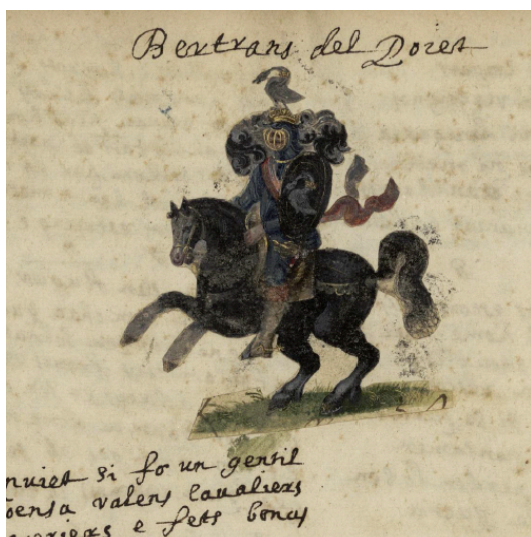 Bertrans del Poiet
nuiet si fo un gentil
oensa valens cavaliers
e fets bonas